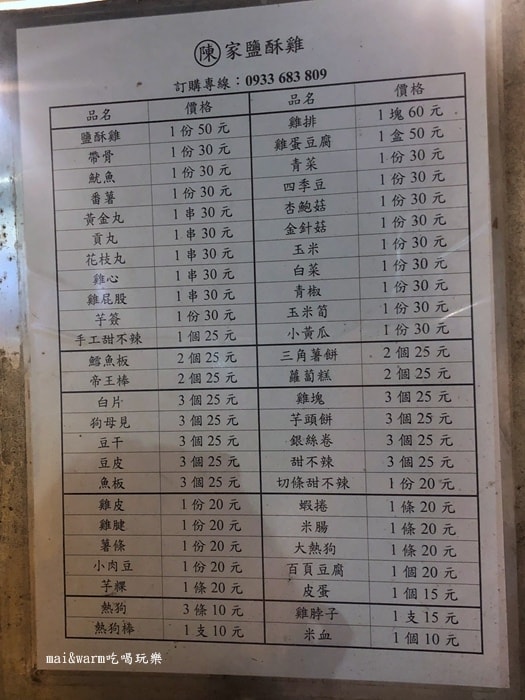 陳家鹽酥雞
訂購專線：0933 683 809
品名 價格 品名 價格
鹽酥雞 1 份 50 元 雞排 1 塊 60 元
帶骨 1 份 30 元 雞蛋豆腐 1 盒 50 元
魷魚 1 份 30 元 青菜 1 份 30 元
番薯 1 份 30 元 四季豆 1 份 30 元
黃金丸 1 串 30 元 杏鮑菇 1 份 30 元
貢丸 1 串 30 元 金針菇 1 份 30 元
花枝丸 1 串 30 元 玉米 1 份 30 元
雞心 1 串 30 元 白菜 1 份 30 元
雞屁股 1 串 30 元 青椒 1 份 30 元
芋簽 1 份 30 元 玉米筍 1 份 30 元
手工甜不辣 1 個 25 元 小黃瓜 1 份 30 元
鱈魚板 2 個 25 元 三角薯餅 2 個 25 元
帝王棒 2 個 25 元 蘿蔔糕 2 個 25 元
白片 3 個 25 元 雞塊 3 個 25 元
狗母見 3 個 25 元 芋頭餅 3 個 25 元
豆干 3 個 25 元 銀絲卷 3 個 25 元
豆皮 3 個 25 元 甜不辣 3 個 25 元
魚板 3 個 25 元 切條甜不辣 1 份 20 元
雞皮 1 份 20 元 蝦捲 1 條 20 元
雞腱 1 份 20 元 米腸 1 條 20 元
薯條 1 份 20 元 大熱狗 1 條 20 元
小肉豆 1 份 20 元 百頁豆腐 1 個 20 元
芋粿 1 條 20 元 皮蛋 1 個 15 元
熱狗 3 條 10 元 雞脖子 1 支 15 元
熱狗棒 1 支 10 元 米血 1 個 10 元
mai&warm吃喝玩樂